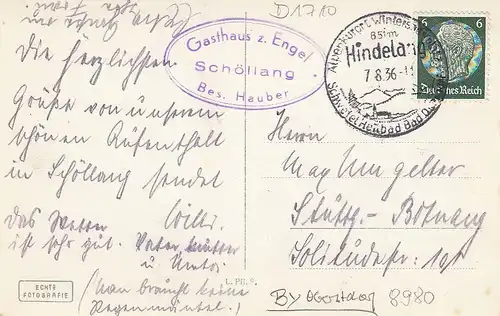 D1710
Gasthaus z. Engel
Schöllang
Bes. Hauber
Alpenkurort Wintersport
850m
Hindelang
7.8.36-11
Schwefel-Heilbad Bad
6 6
Deutsches Reich
Die herzlichsten
Grüße von unserem
schönen Aufenthalt
in Schöllang sendet
Willi.
Das Wetter
ist sehr gut. Vater Mutter
u.
(Man braucht keine
Regenmäntel.)
Herrn
Max Umgelter
Stuttg.- Botnang
Solitudestr.
ECHTE
FOTOGRAFIE
L. PH. S.
BY Oberstdorf 8980